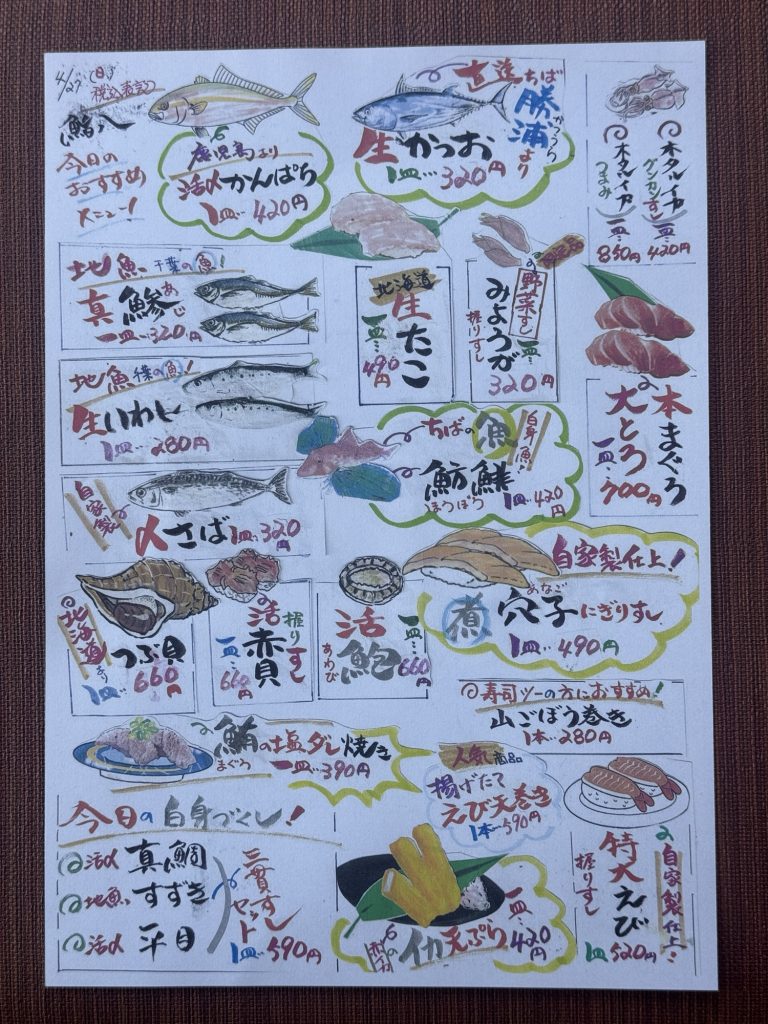 4/27 (日)
税込表記
鮨八
今日の
おすすめ
メニュー!
鹿児島より
活〆かんぱち
1皿…420円
直送ちば
勝浦より
かつうら
生かつお
1皿…320円
ホタルイカ
グンカンすし
一皿…420円
ホタルイカ
つまみ
一皿…850円
地魚 千葉の魚!
真鯵
あじ
一皿…320円
北海道
生たこ
一皿…490円
限定品
野菜すし
みょうが
握りすし
一皿…320円
本まぐろ
大とろ
一皿…700円
地魚 千葉の魚!
生いわし
1皿…280円
ちばの魚
白身魚!
魴鮄
ほうぼう
1皿…420円
自家製
〆さば 1皿…320円
自家製仕上!
煮穴子にぎりすし
あなご
1皿…490円
北海道より
つぶ貝
1皿…660円
活赤貝
握りすし
一皿…660円
活鮑
あわび
一皿…660円
寿司ツーの方におすすめ!
山ごぼう巻き
1本…280円
鮪の塩ダレ焼き
まぐろ
一皿…390円
人気商品
揚げたて
えび天巻き
1本…590円
今日の白身づくし!
活〆 真鯛
地魚 すずき
活〆 平目
三貫すし
セット
1皿…590円
イカ天ぷら
一皿…420円
自家製仕上
特大えび
握りすし
1皿520円